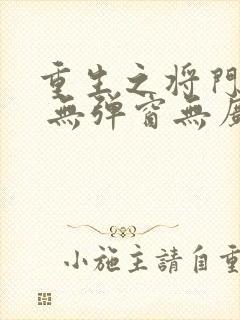 重生之将門
無弹窗無
小施主請自重